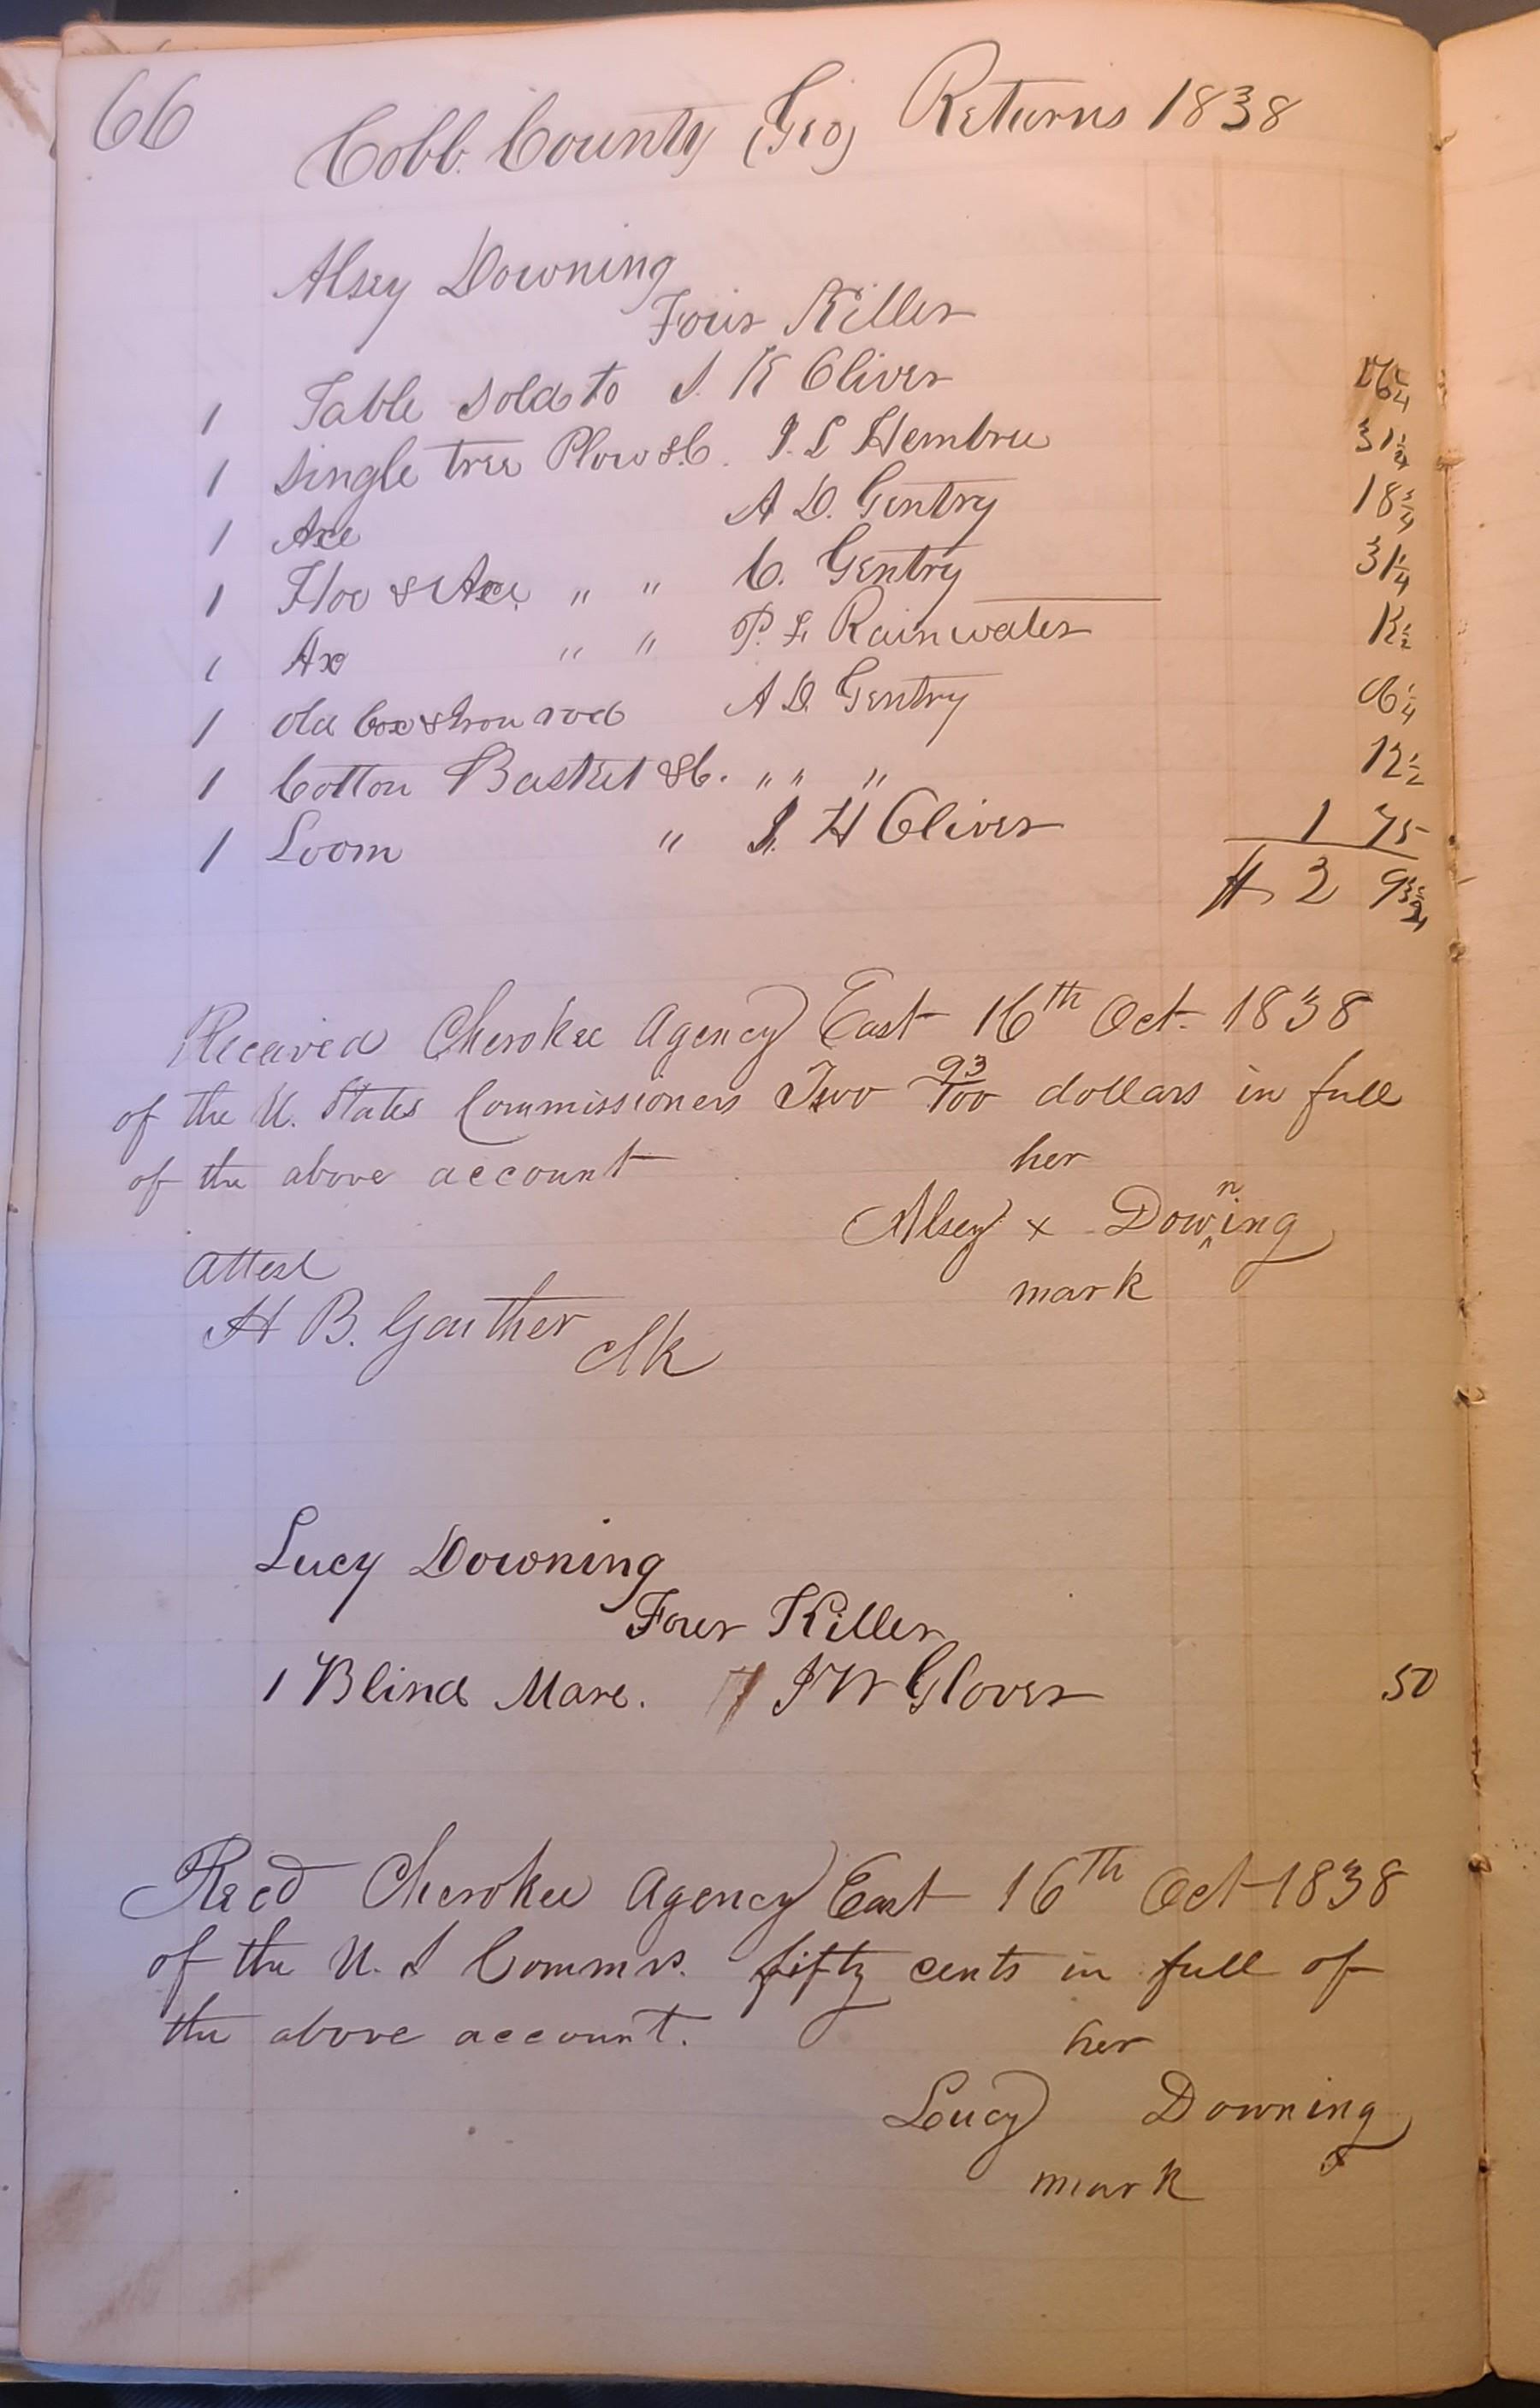 66 Cobb County (Geo) Returns 1838
Alsey Downing
Four Killer
1 Table sold to J. K Oliver 06¼
1 Single tree Plow &C. J. L Hembree 31¼
1 Axe A D. Gentry 18¾
1 Hoe & Axe " " C. Gentry 31¼
1 Ax " " P. L Rainwater 12½
1 old box & Iron rod A D. Gentry 06¼
1 Cotton Basket &C. " " " 12½
1 Loom " J. H Oliver 1 75
$ 2 93¾
Received Cherokee Agency East 16th Oct. 1838
of the U. States Commissioners Two 93/100 dollars in full
of the above account her
Alsey x Downing
mark
attest
H B. Gaither clk
Lucy Downing
Four Killer
1 Blind Mare. J W Glover 50
Recd Cherokee Agency East 16th Oct 1838
of the U. S Commrs. fifty cents in full of
the above account. her
Lucy Downing
x
mark